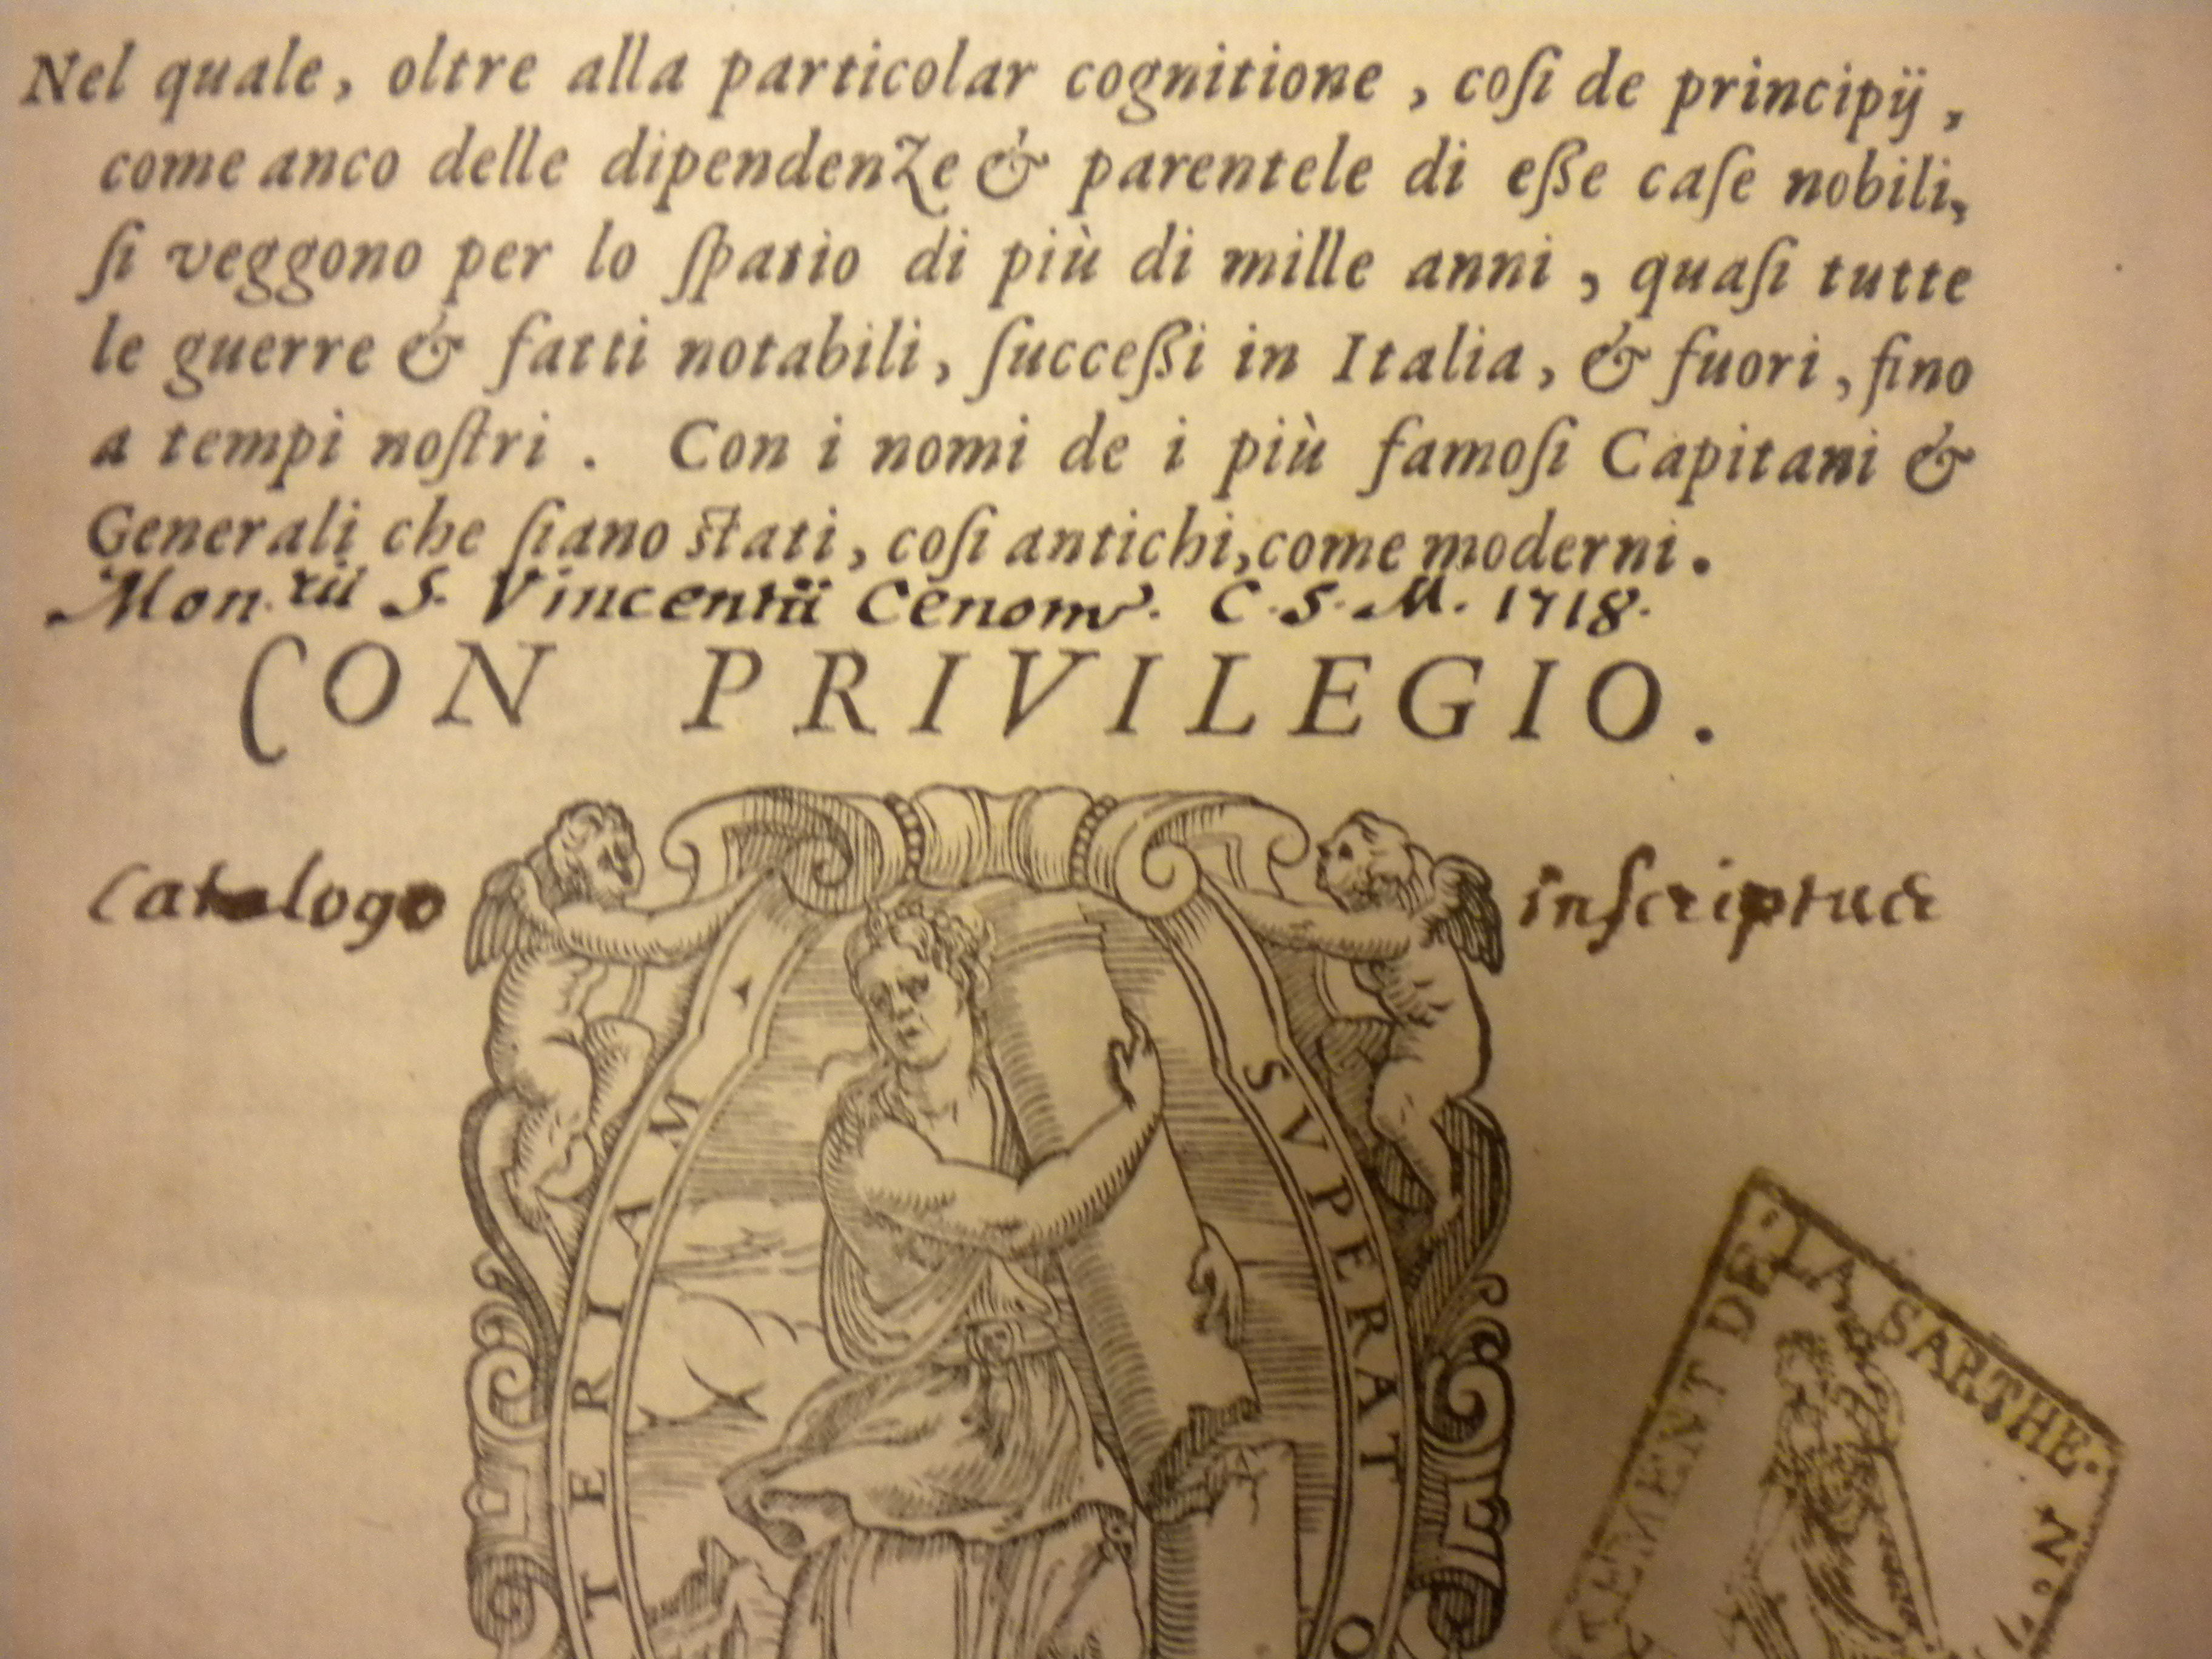 Nel quale, oltre alla particolar cognitione, coſi de principij,
come anco delle dipendenze & parentele di eſſe caſe nobili,
ſi veggono per lo ſpatio di più di mille anni, quaſi tutte
le guerre & fatti notabili, ſucceſſi in Italia, & fuori, fino
a tempi noſtri. Con i nomi de i più famoſi Capitani &
Generali che ſiano ſtati, coſi antichi, come moderni.
Mon.rii S. Vincentii Cenom. C. S. M. 1718.
CON PRIVILEGIO.
Catalogo inſcriptus
TERIAM SVPERAT O
TEMENT DE LA SARTHE. N